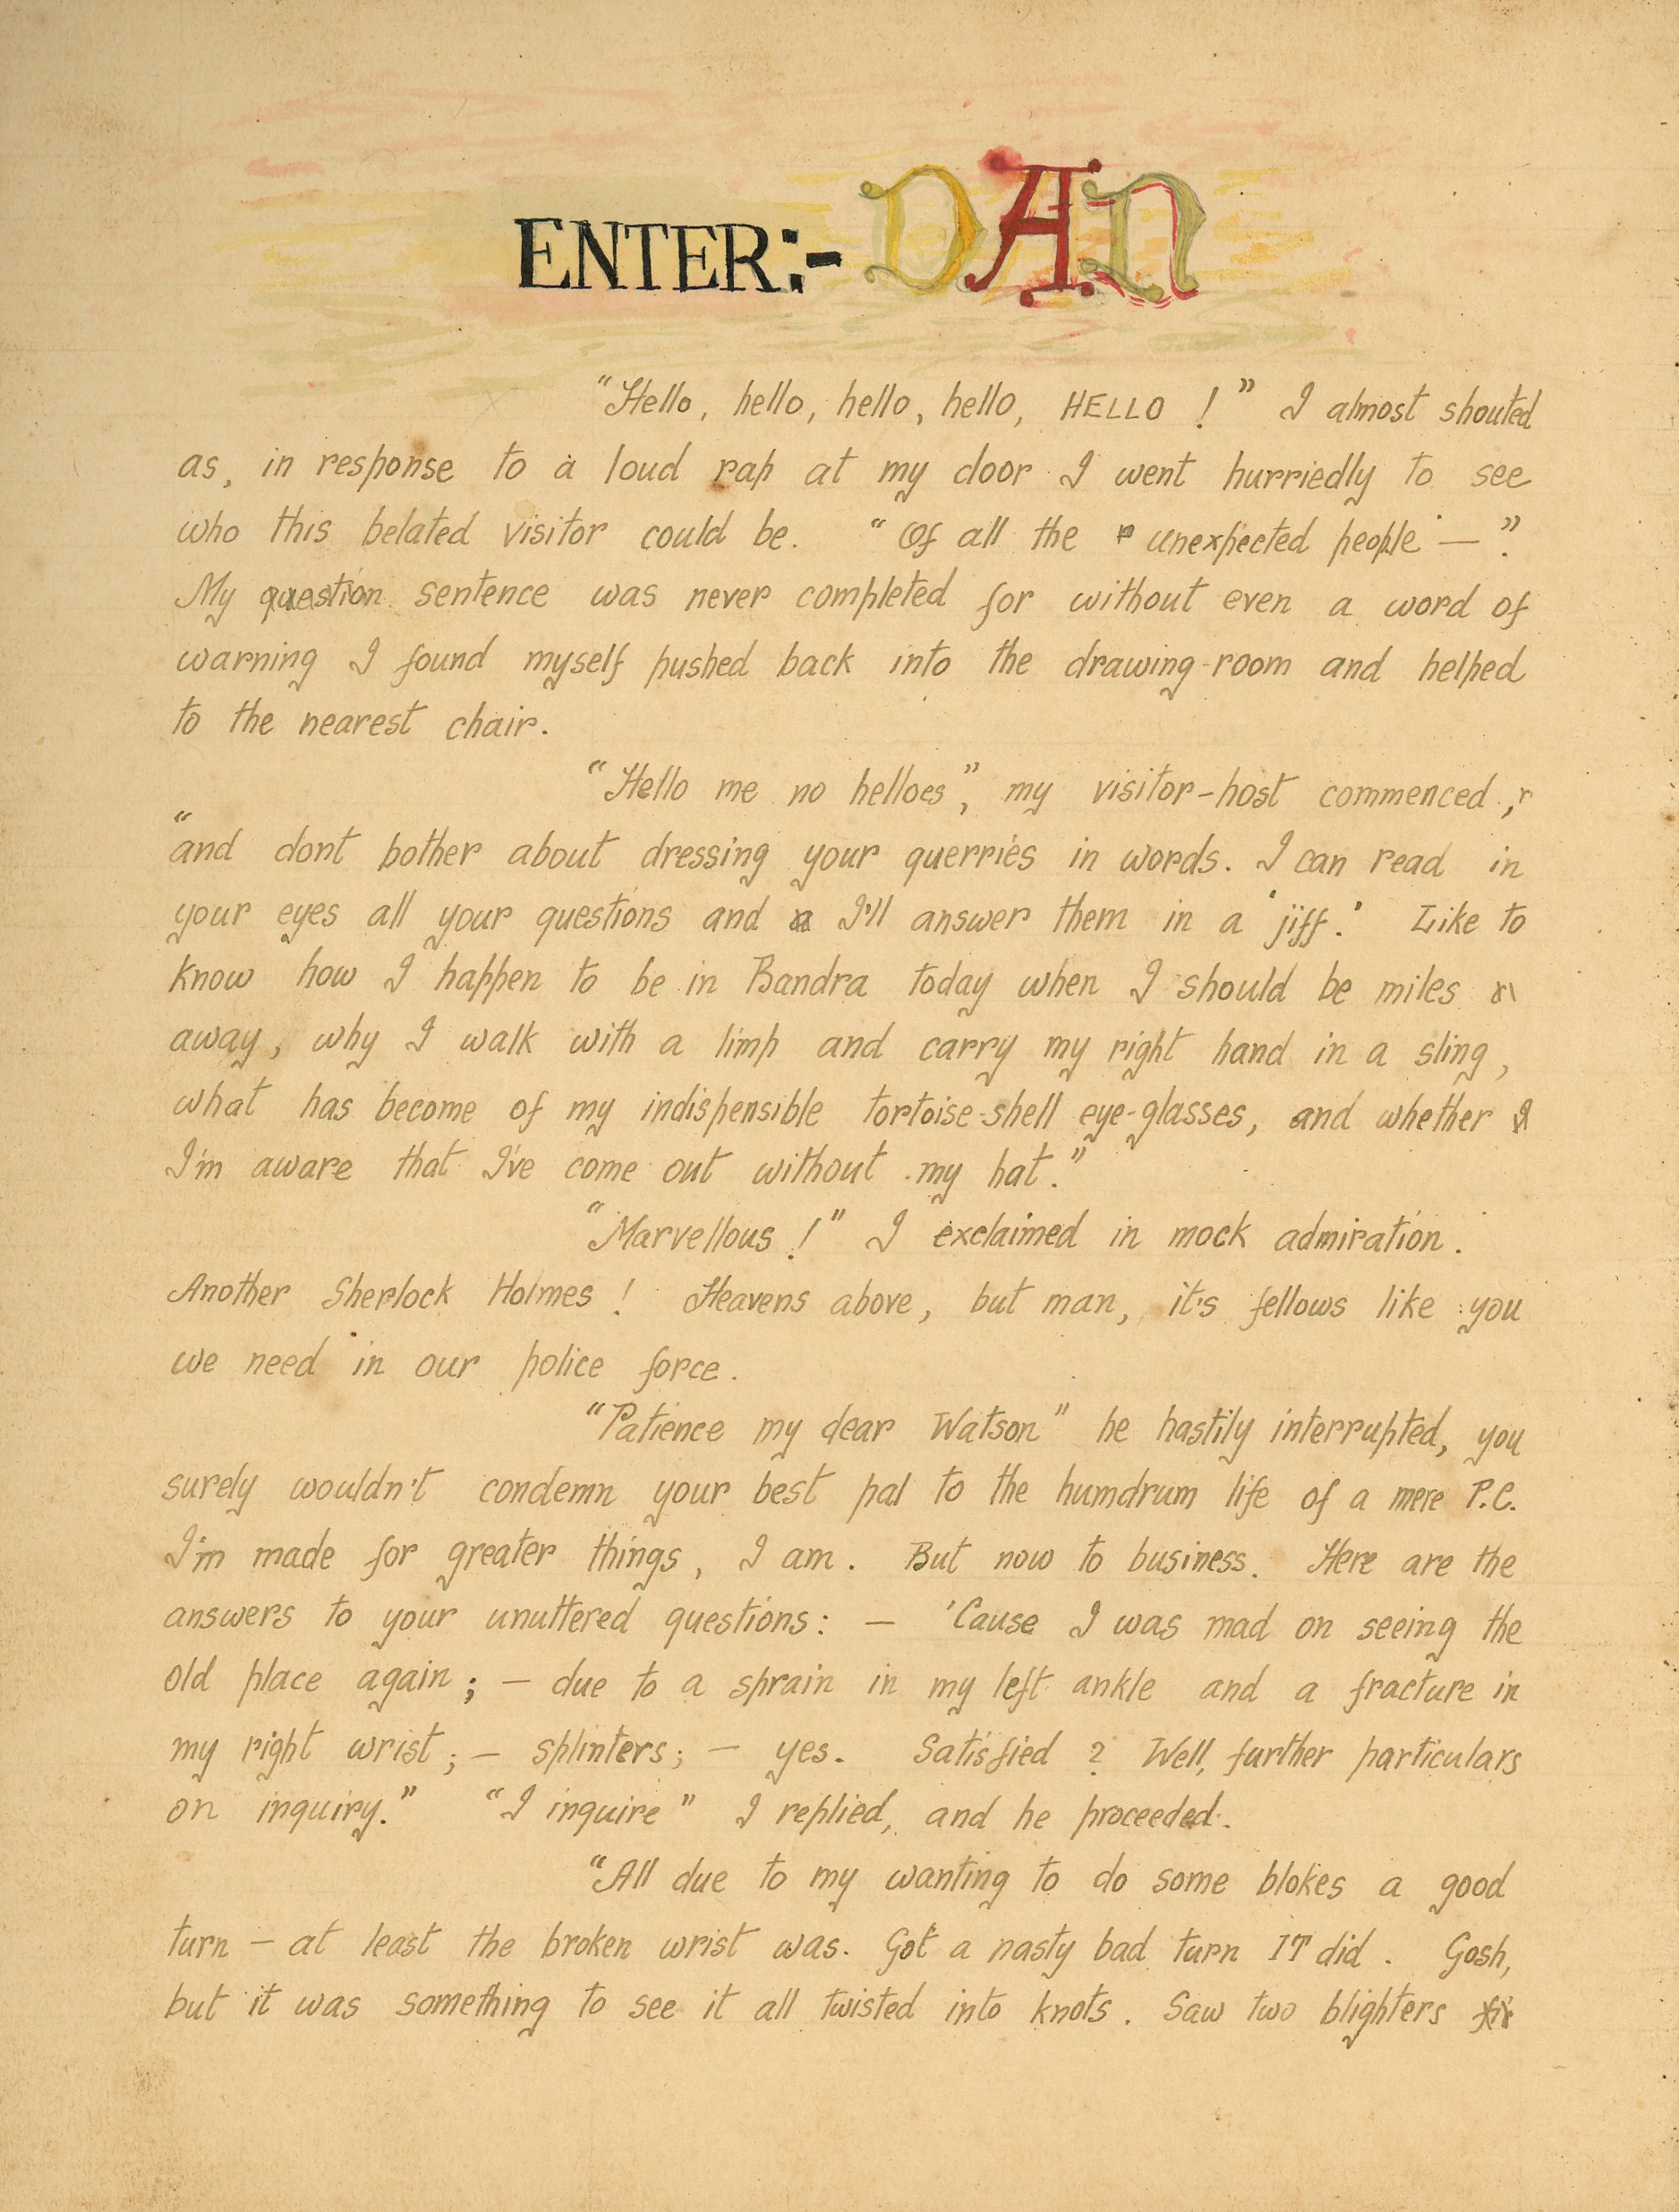 ENTER:- DAN
"Hello, hello, hello, hello, HELLO !" I almost shouted
as, in response to a loud rap at my door I went hurriedly to see
who this belated visitor could be. "Of all the unexpected people —".
My question sentence was never completed for without even a word of
warning I found myself pushed back into the drawing-room and helped
to the nearest chair.
"Hello me no helloes", my visitor-host commenced,
"and dont bother about dressing your querries in words. I can read in
your eyes all your questions and I'll answer them in a 'jiff.' Like to
know how I happen to be in Bandra today when I should be miles
away, why I walk with a limp and carry my right hand in a sling,
what has become of my indispensible tortoise-shell eye-glasses, and whether
I'm aware that I've come out without my hat."
"Marvellous !" I exclaimed in mock admiration.
Another Sherlock Holmes ! Heavens above, but man, it's fellows like you
we need in our police force.
"Patience my dear Watson" he hastily interrupted, you
surely wouldn't condemn your best pal to the humdrum life of a mere P.C.
I'm made for greater things, I am. But now to business. Here are the
answers to your unuttered questions: — 'Cause I was mad on seeing the
old place again; — due to a sprain in my left ankle and a fracture in
my right wrist; — splinters; — yes. Satisfied ? Well, further particulars
on inquiry." "I inquire" I replied, and he proceeded.
"All due to my wanting to do some blokes a good
turn — at least the broken wrist was. Got a nasty bad turn IT did. Gosh,
but it was something to see it all twisted into knots. Saw two blighters